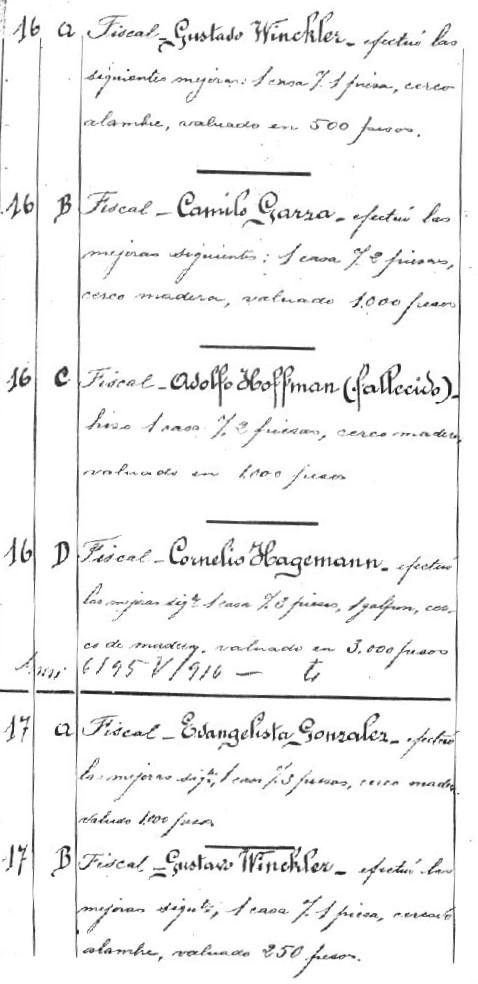 16 a Fiscal - Gustavo Winckler - efectuó las
siguientes mejoras: 1 casa 7. 1 piesa, cerco
alambre, valuado en 500 pesos.
16 B Fiscal - Camilo Garza - efectuó las
mejoras siguientes: 1 casa 7. 2 piesas,
cerco madera, valuado 1.000 pesos
16 C Fiscal - Adolfo Hoffman (fallecido) -
hiso 1 casa 7. 2 piesas, cerco madera,
valuado en 1.000 pesos
16 D Fiscal - Cornelio Hagemann - efectuó
las mejoras sigts 1 casa 7. 3 piesas, 1 galpon, cer-
co de madera, valuado en 3.000 pesos
6195 V/916 -
17 a Fiscal - Evangelista Gonzalez - efectuó
las mejoras sigts, 1 casa 7. 3 piesas, cerco madera
valuado 1.000 pesos
17 B Fiscal - Gustavo Winckler - efectuó las
mejoras sigts, 1 casa 7. 1 piesa, cercado
alambre, valuado 250 pesos.